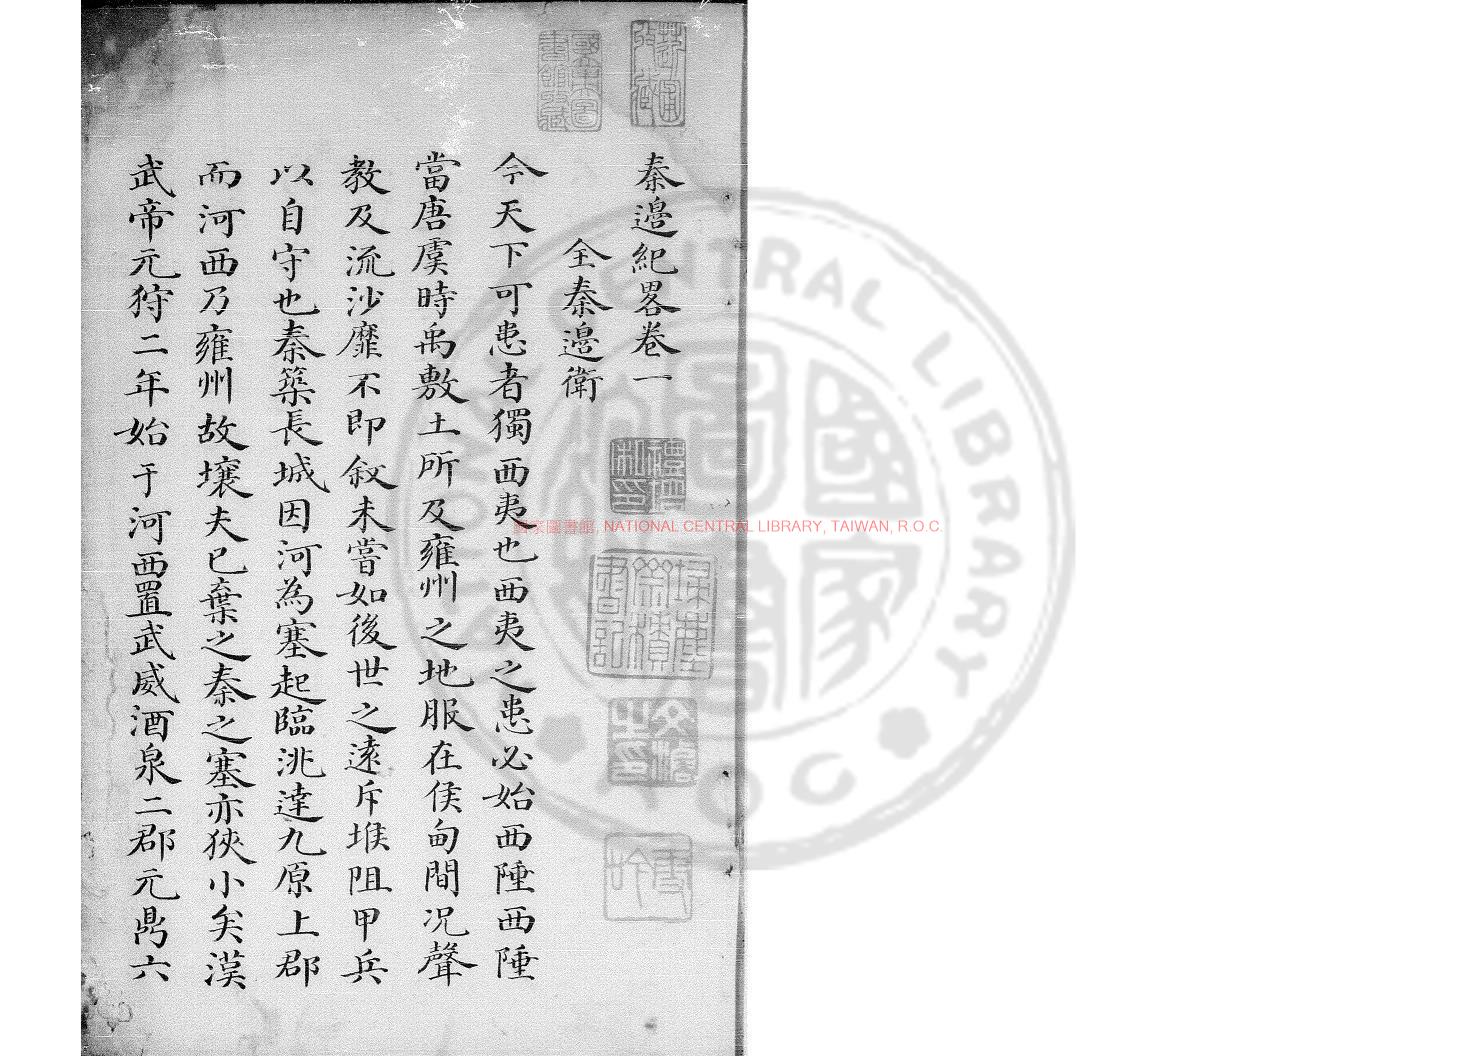 秦邊紀畧卷一
全秦邊衛
今天下可患者獨西夷也西夷之患必始西陲西陲
當唐虞時禹敷土所及雍州之地服在侯甸間况聲
教及流沙靡不即叙未嘗如後世之遠斥堠阻甲兵
以自守也秦築長城因河為塞起臨洮達九原上郡
而河西乃雍州故壤夫已棄之秦之塞亦狹小矣漢
武帝元狩二年始于河西置武威酒泉二郡元鼎六
國家圖書館, NATIONAL CENTRAL LIBRARY, TAIWAN, R.O.C.
NATIONAL CENTRAL LIBRARY
R.O.C.
國家圖書
國立中央圖書館藏
掃葉山積書記